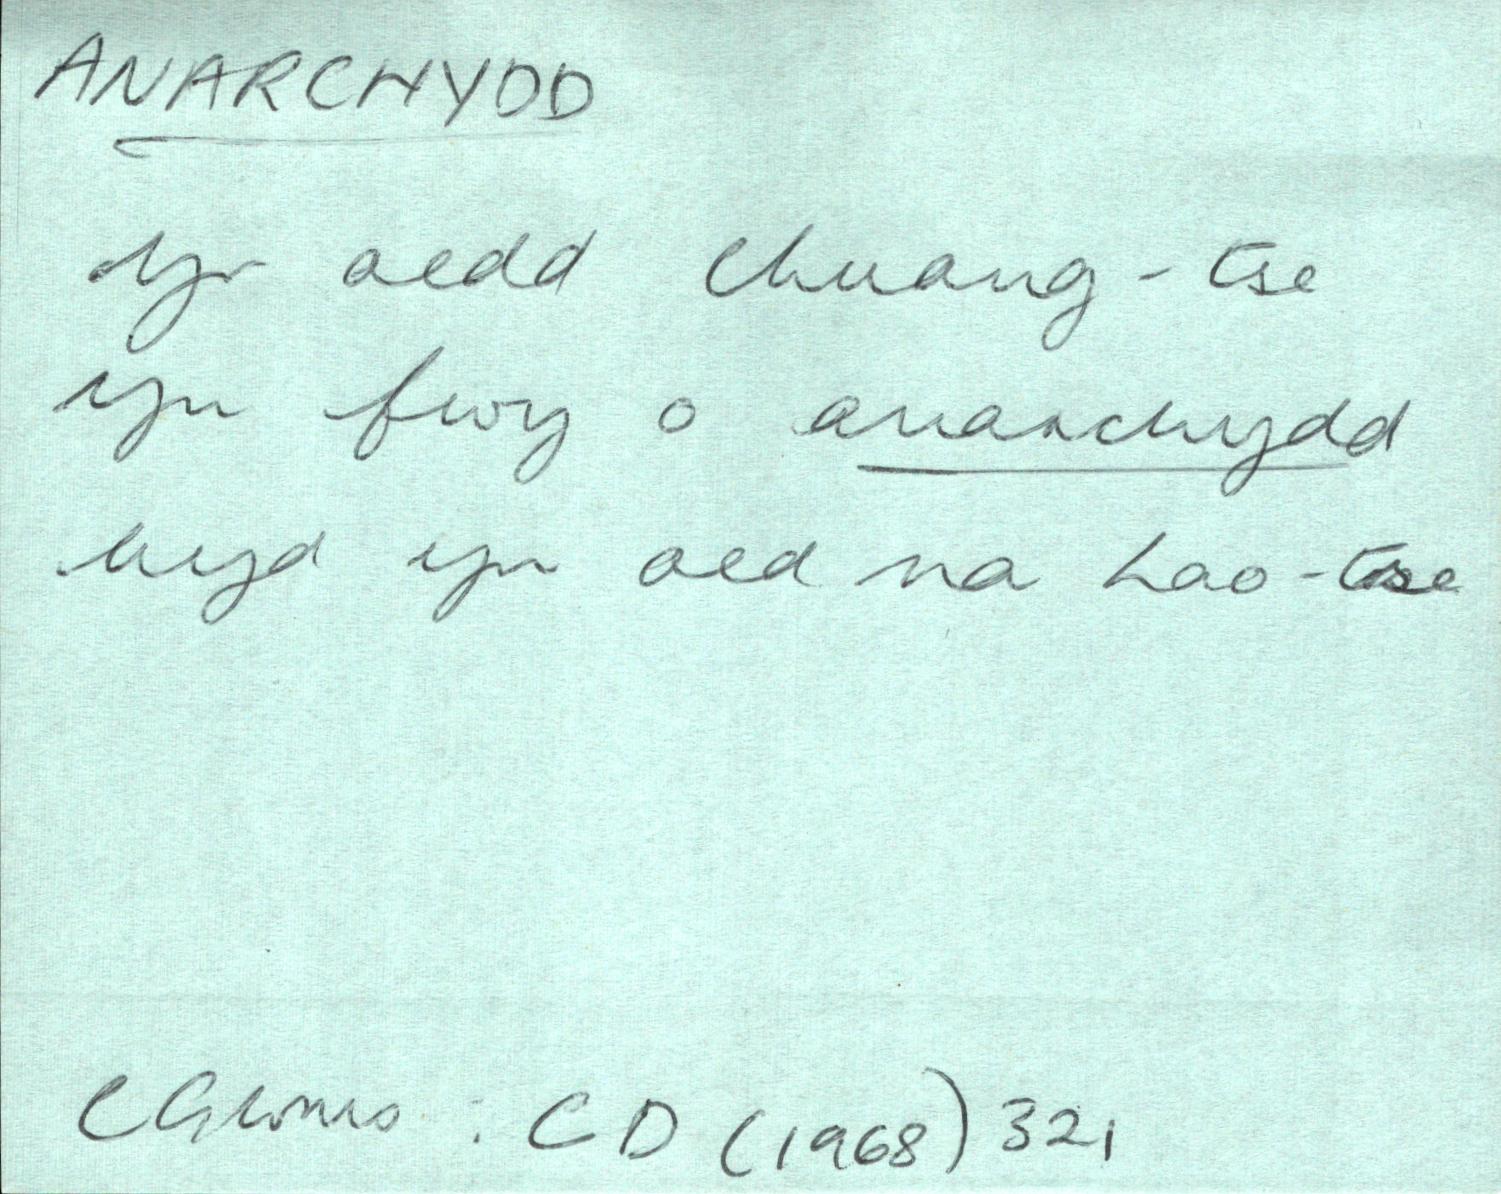 ANARCHYDD
yr oedd Chuang-tse
yn fwy o anarchydd
hyd yn oed na Lao-tse
: CD (1968) 321